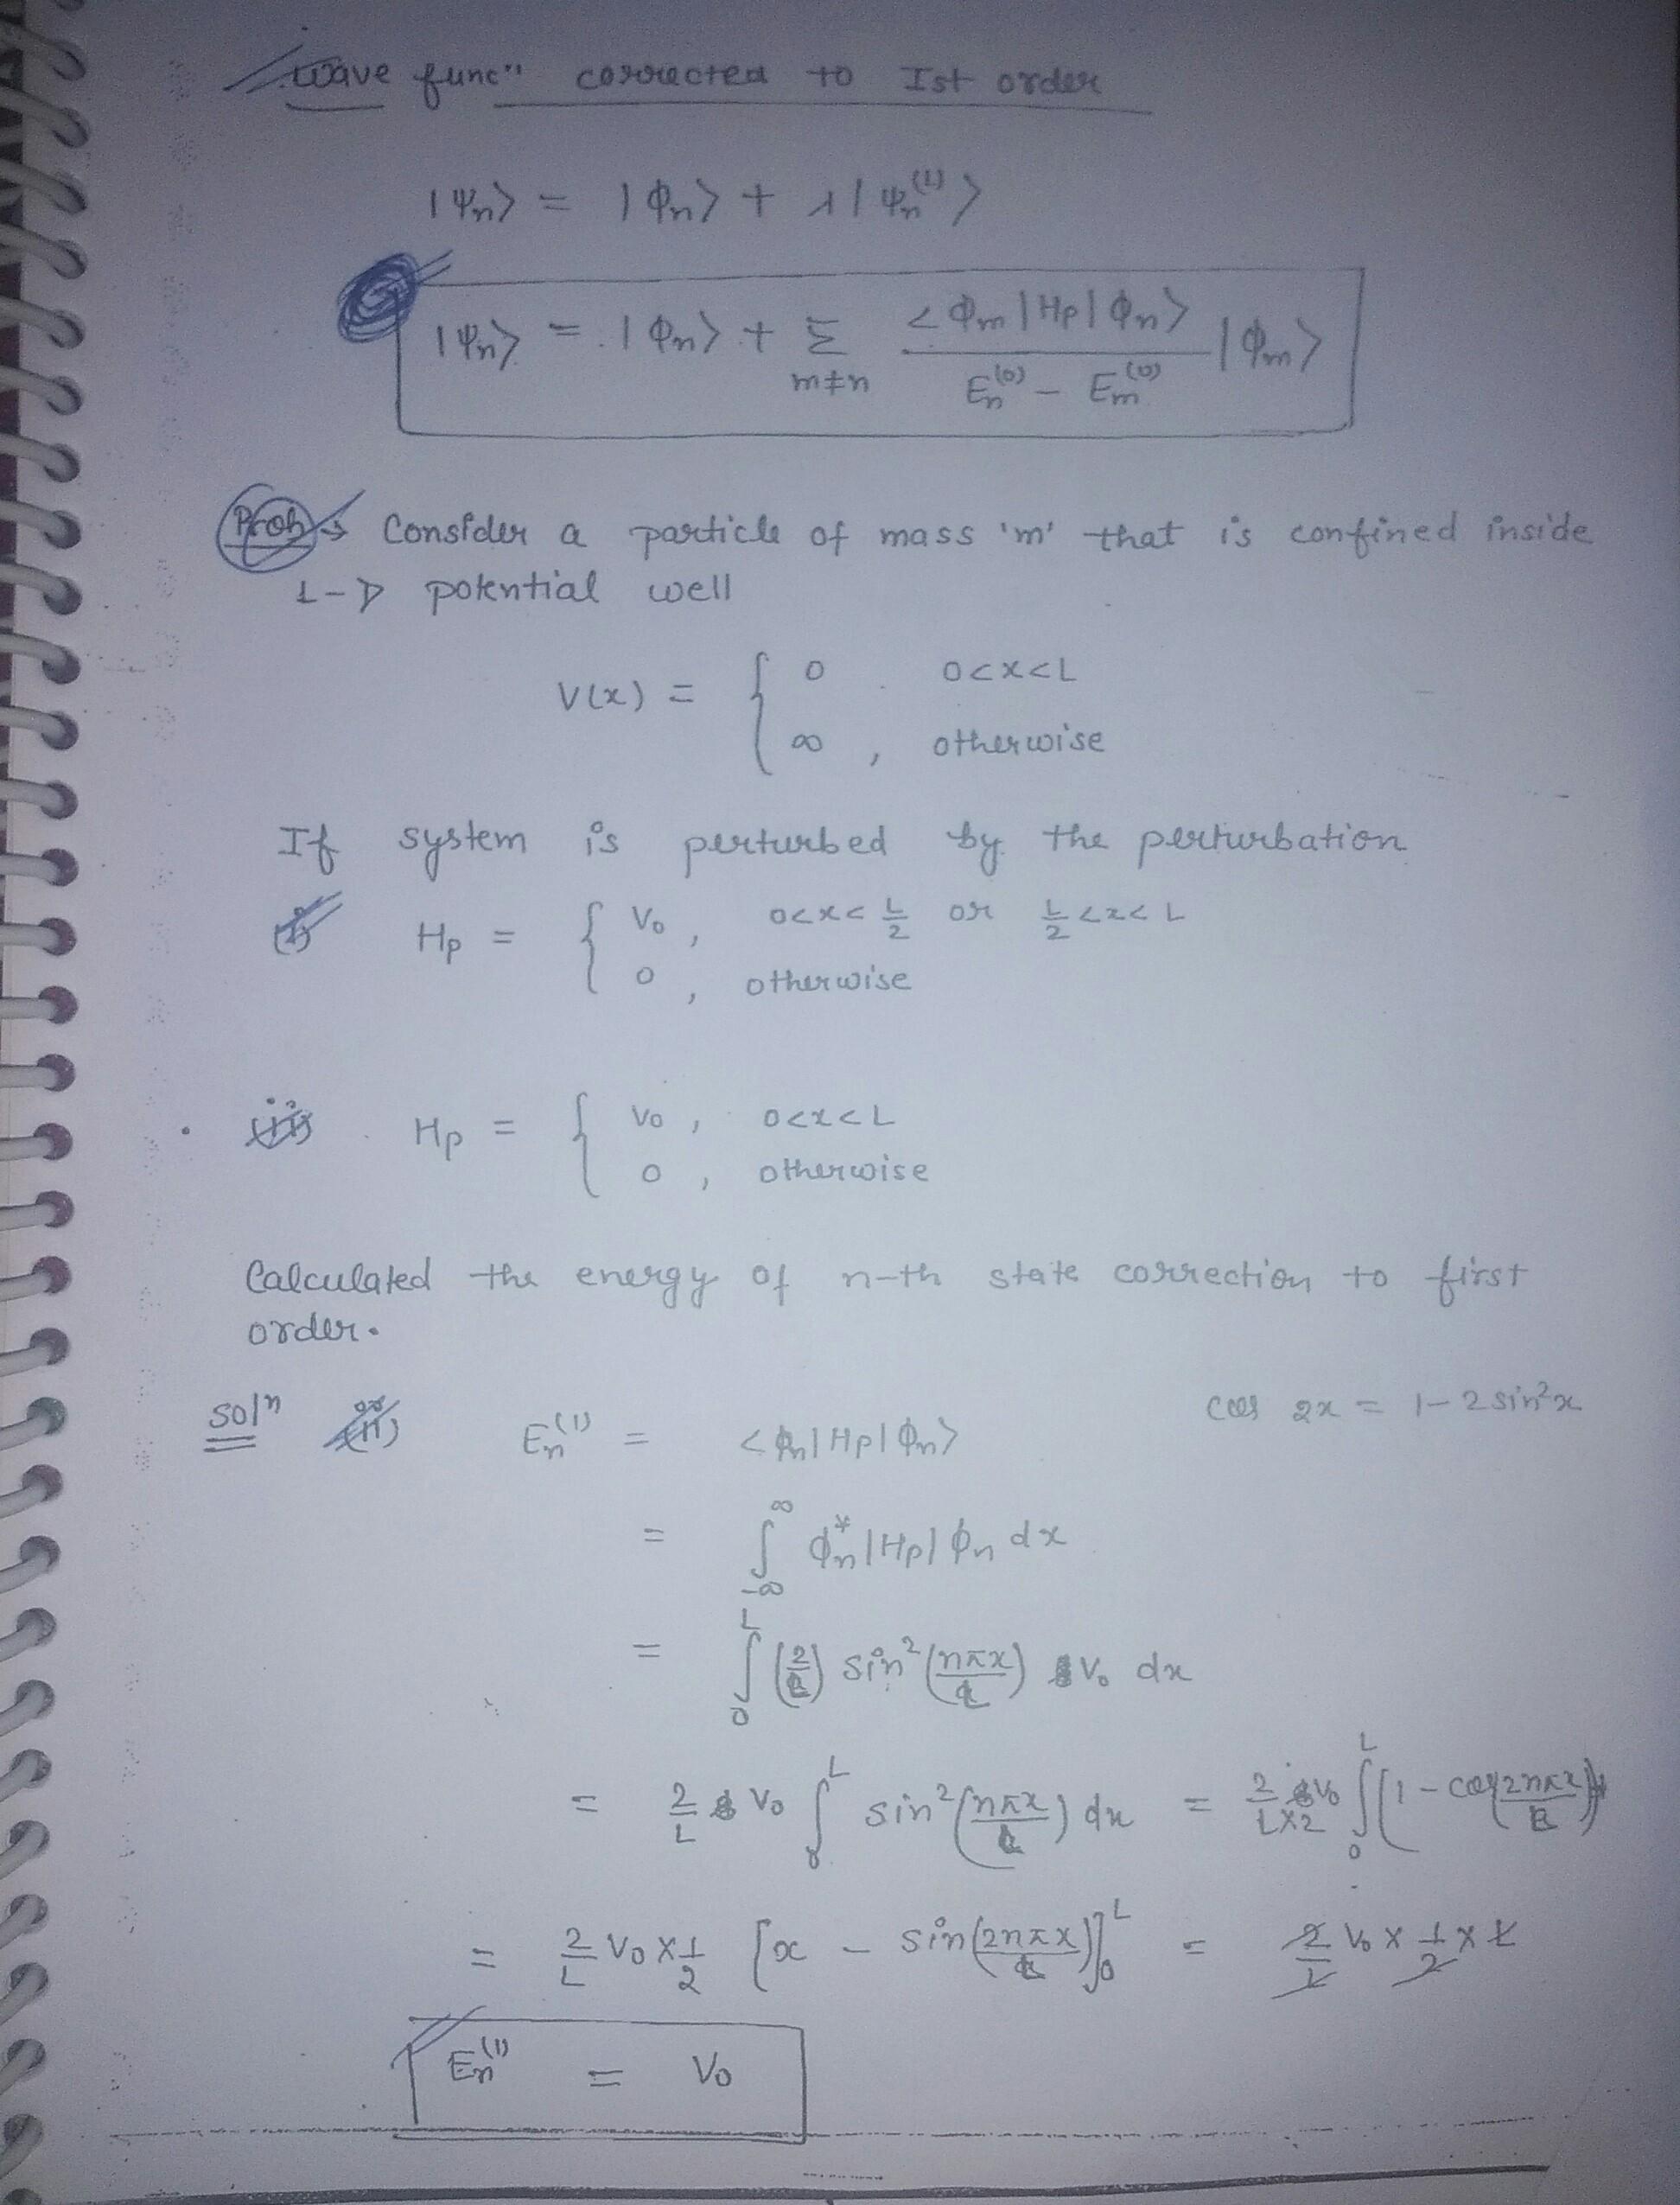 Wave funcⁿ corrected to Ist order
|Ψn> = |ϕn> + λ|Ψn^(1)>
|Ψn> = |ϕn> + Σ_{m≠n} <ϕm|Hp|ϕn> / (En^(0) − Em^(0)) |ϕm>
Prob → Consider a particle of mass 'm' that is confined inside
1-D potential well
V(x) = { 0 0<x<L
∞ , otherwise
If system is perturbed by the perturbation
(i) Hp = { V0 , 0<x<L/2 or L/2<x<L
0 , otherwise
(ii) Hp = { V0 , 0<x<L
0 , otherwise
Calculated the energy of n-th state correction to first
order.
solⁿ (ii) En^(1) = <ϕn|Hp|ϕn> cos 2x = 1-2 sin²x
= ∫_{-∞}^{∞} ϕn*|Hp|ϕn dx
= ∫_0^L (2/L) sin²(nπx/L) V0 dx
= 2/L V0 ∫_0^L sin²(nπx/L) dx = 2/(L×2) V0 ∫_0^L (1 - cos(2nπx/L))
= 2/L V0 × 1/2 [x - sin(2nπx/L)]_0^L = 2/L V0 × 1/2 × L
En^(1) = V0